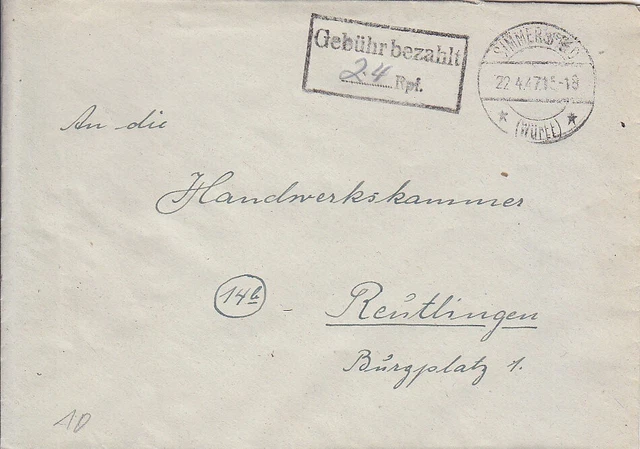 Gebühr bezahlt
24 Rpf.
22.4.47.15-18
(WÜRTT)
An die
Handwerkskammer
14b - Reutlingen
Burgplatz 1.
10